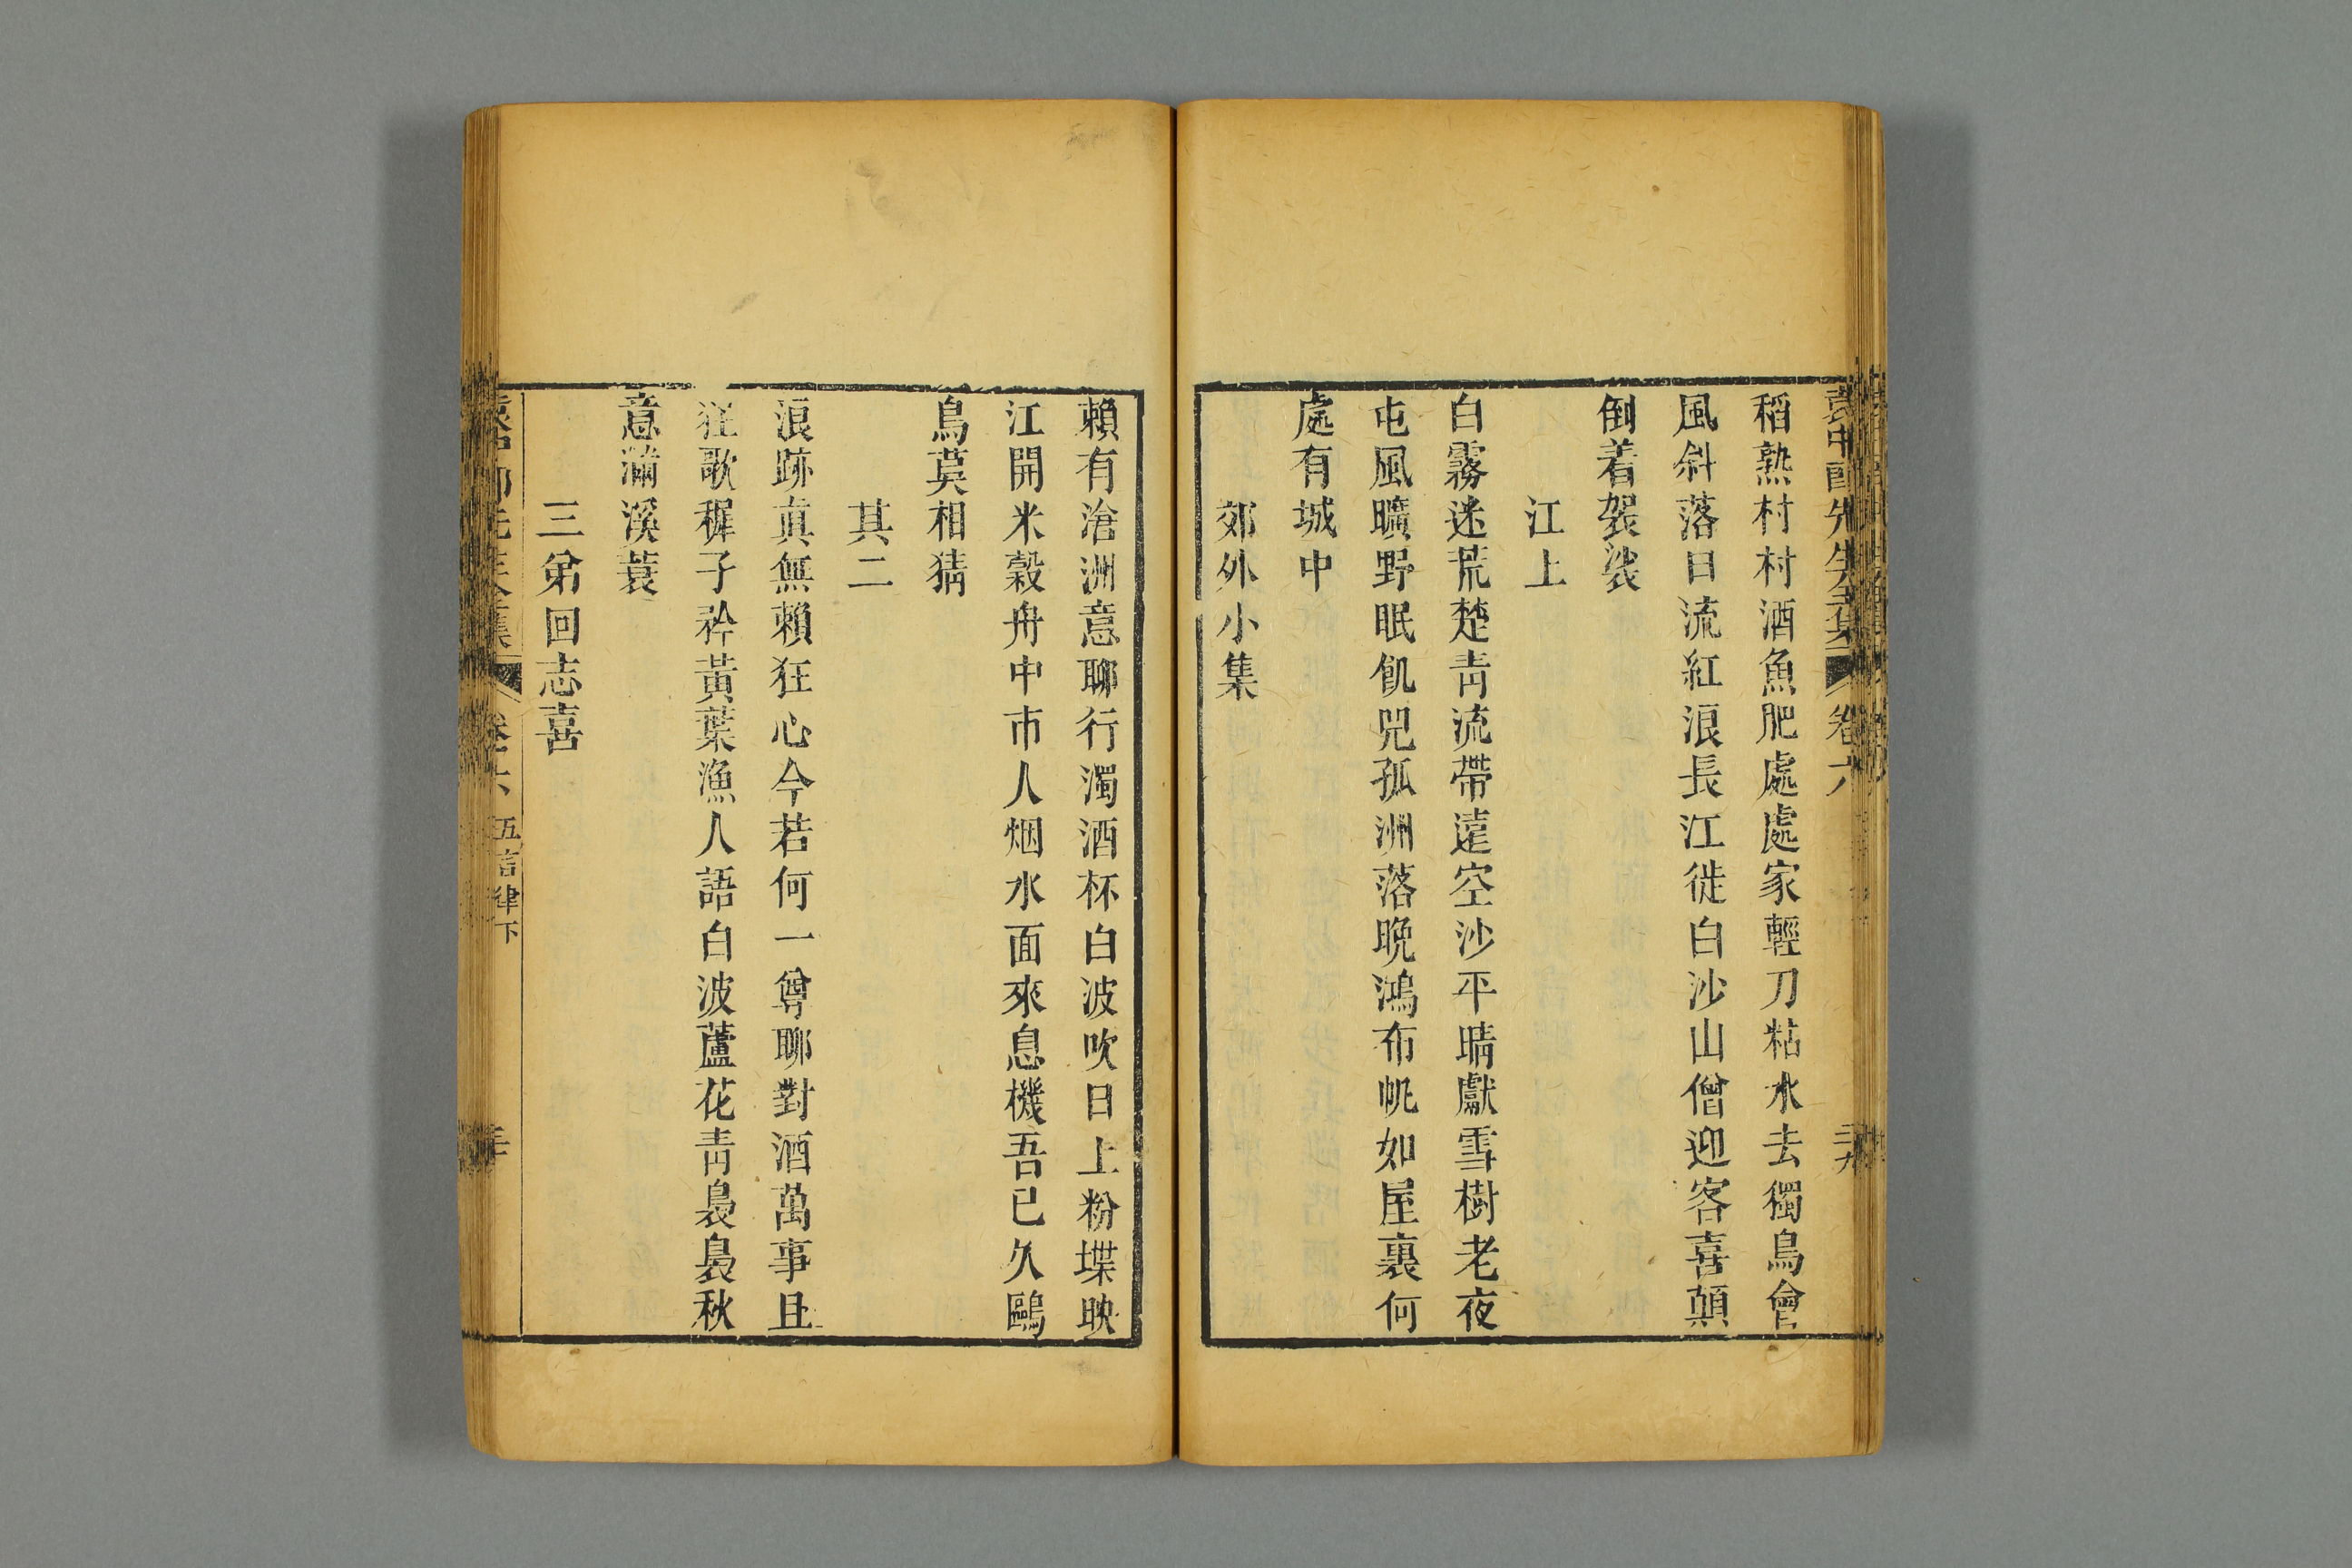 稻熟村村酒魚肥處處家輕刀粘水去獨鳥會
風斜落日流紅浪長江徙白沙山僧迎客喜顛
倒着袈裟
江上
白霧迷荒楚青流帶遠空沙平晴獻雪樹老夜
屯風曠野眠飢兕孤洲落晚鴻布帆如屋裏何
處有城中
郊外小集
賴有滄洲意聊行濁酒杯白波吹日上粉堞映
江開米穀舟中市人烟水面來息機吾已久鷗
鳥莫相猜
其二
浪跡真無賴狂心今若何一尊聊對酒萬事且
狂歌穉子矜黃葉漁人語白波蘆花青裊裊秋
意滿溪蓑
三弟回志喜
卷六 五言律下